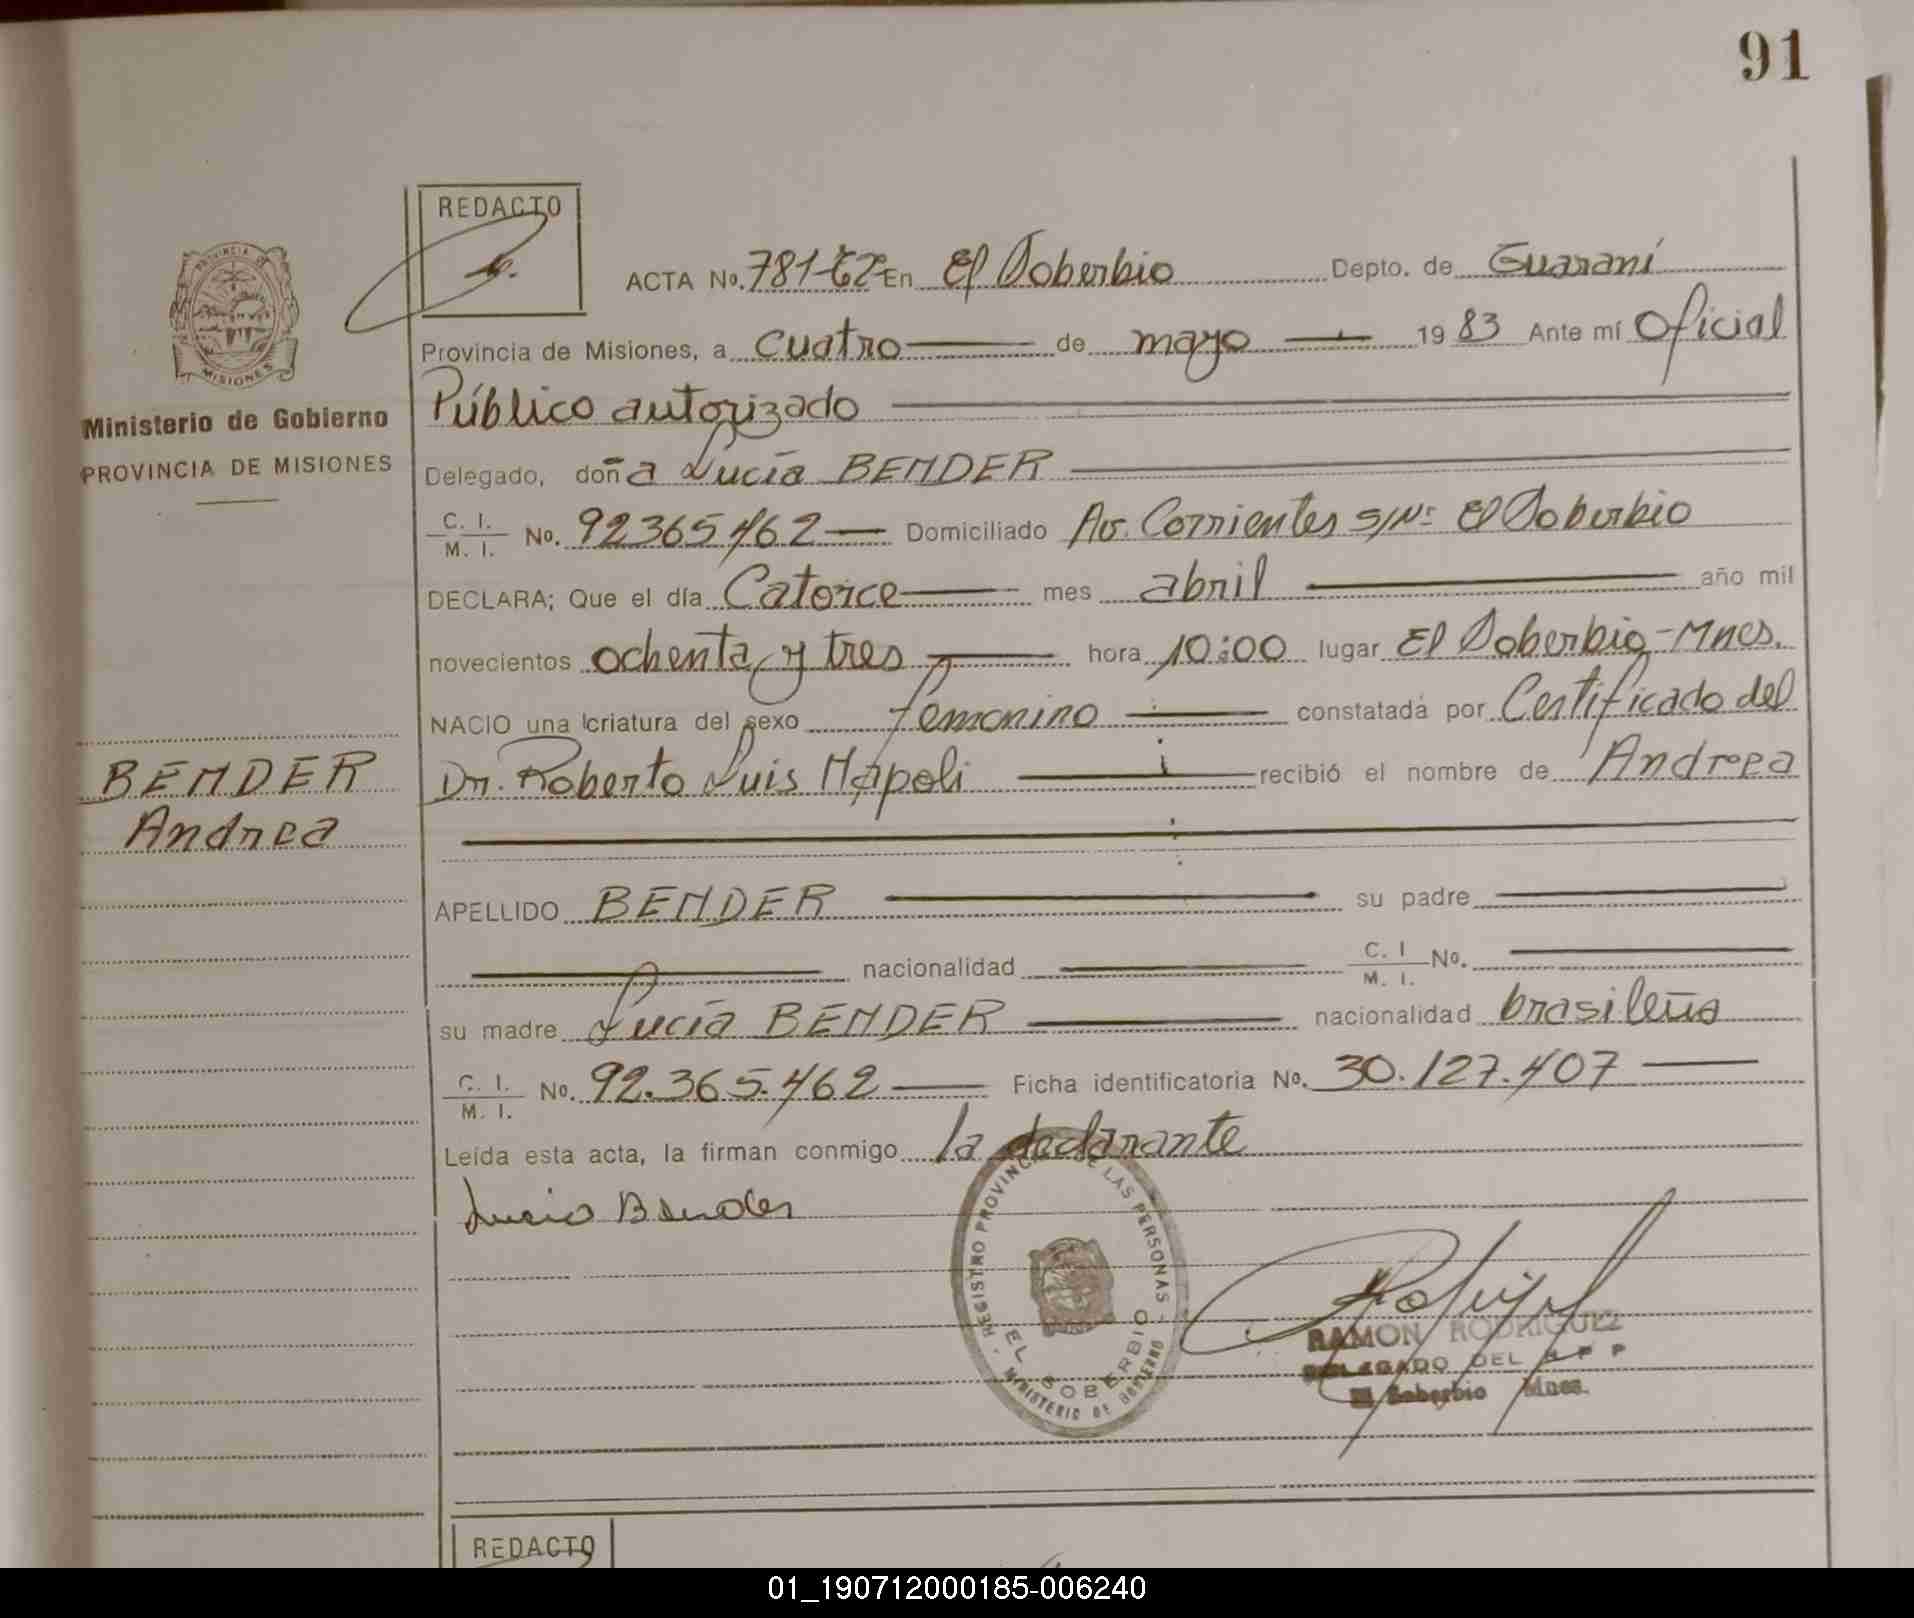 91
REDACTO
PROVINCIA DE
MISIONES
Ministerio de Gobierno
PROVINCIA DE MISIONES
ACTA No. 781-T2- En El Soberbio Depto. de Guaraní
Provincia de Misiones, a cuatro de mayo 1983 Ante mí Oficial
Público autorizado
Delegado, doña Lucía BENDER
C. I. / M. I. No. 92365462 Domiciliado Av. Corrientes s/Nº El Soberbio
DECLARA; Que el día Catorce mes abril año mil
novecientos ochenta y tres hora 10:00 lugar El Soberbio-Mnes.
NACIO una criatura del sexo femenino constatada por Certificado del
Dr. Roberto Luis Nápoli recibió el nombre de Andrea
BENDER
Andrea
APELLIDO BENDER su padre
nacionalidad C. I / M. I. No.
su madre Lucía BENDER nacionalidad brasileña
C. I. / M. I. No. 92.365.462 Ficha identificatoria No. 30.127.407
Leída esta acta, la firman conmigo la declarante
Lucia Bender
REGISTRO PROVINCIAL DE LAS PERSONAS
EL SOBERBIO
MINISTERIO DE GOBIERNO
RAMON RODRIGUEZ
DELEGADO DEL R P P
El Soberbio Mnes.
REDACTO
01_190712000185-006240